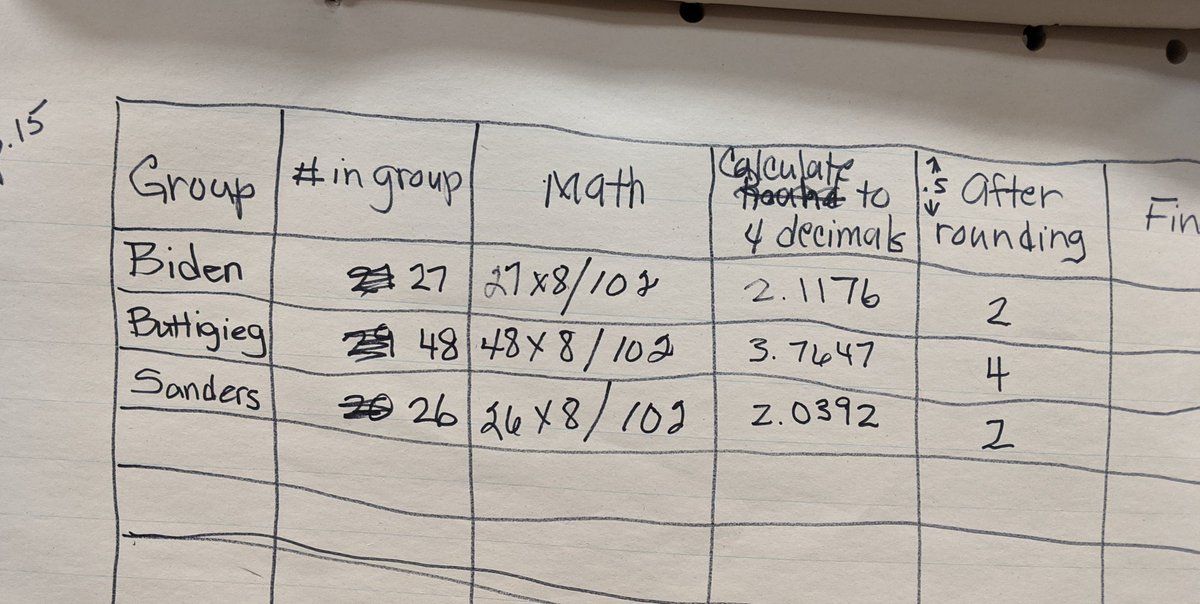 .15
Group # in group Math Calculate to 4 decimals .5 after rounding Fin
Biden 27 27x8/102 2.1176 2
Buttigieg 48 48x8/102 3.7647 4
Sanders 26 26x8/102 2.0392 2